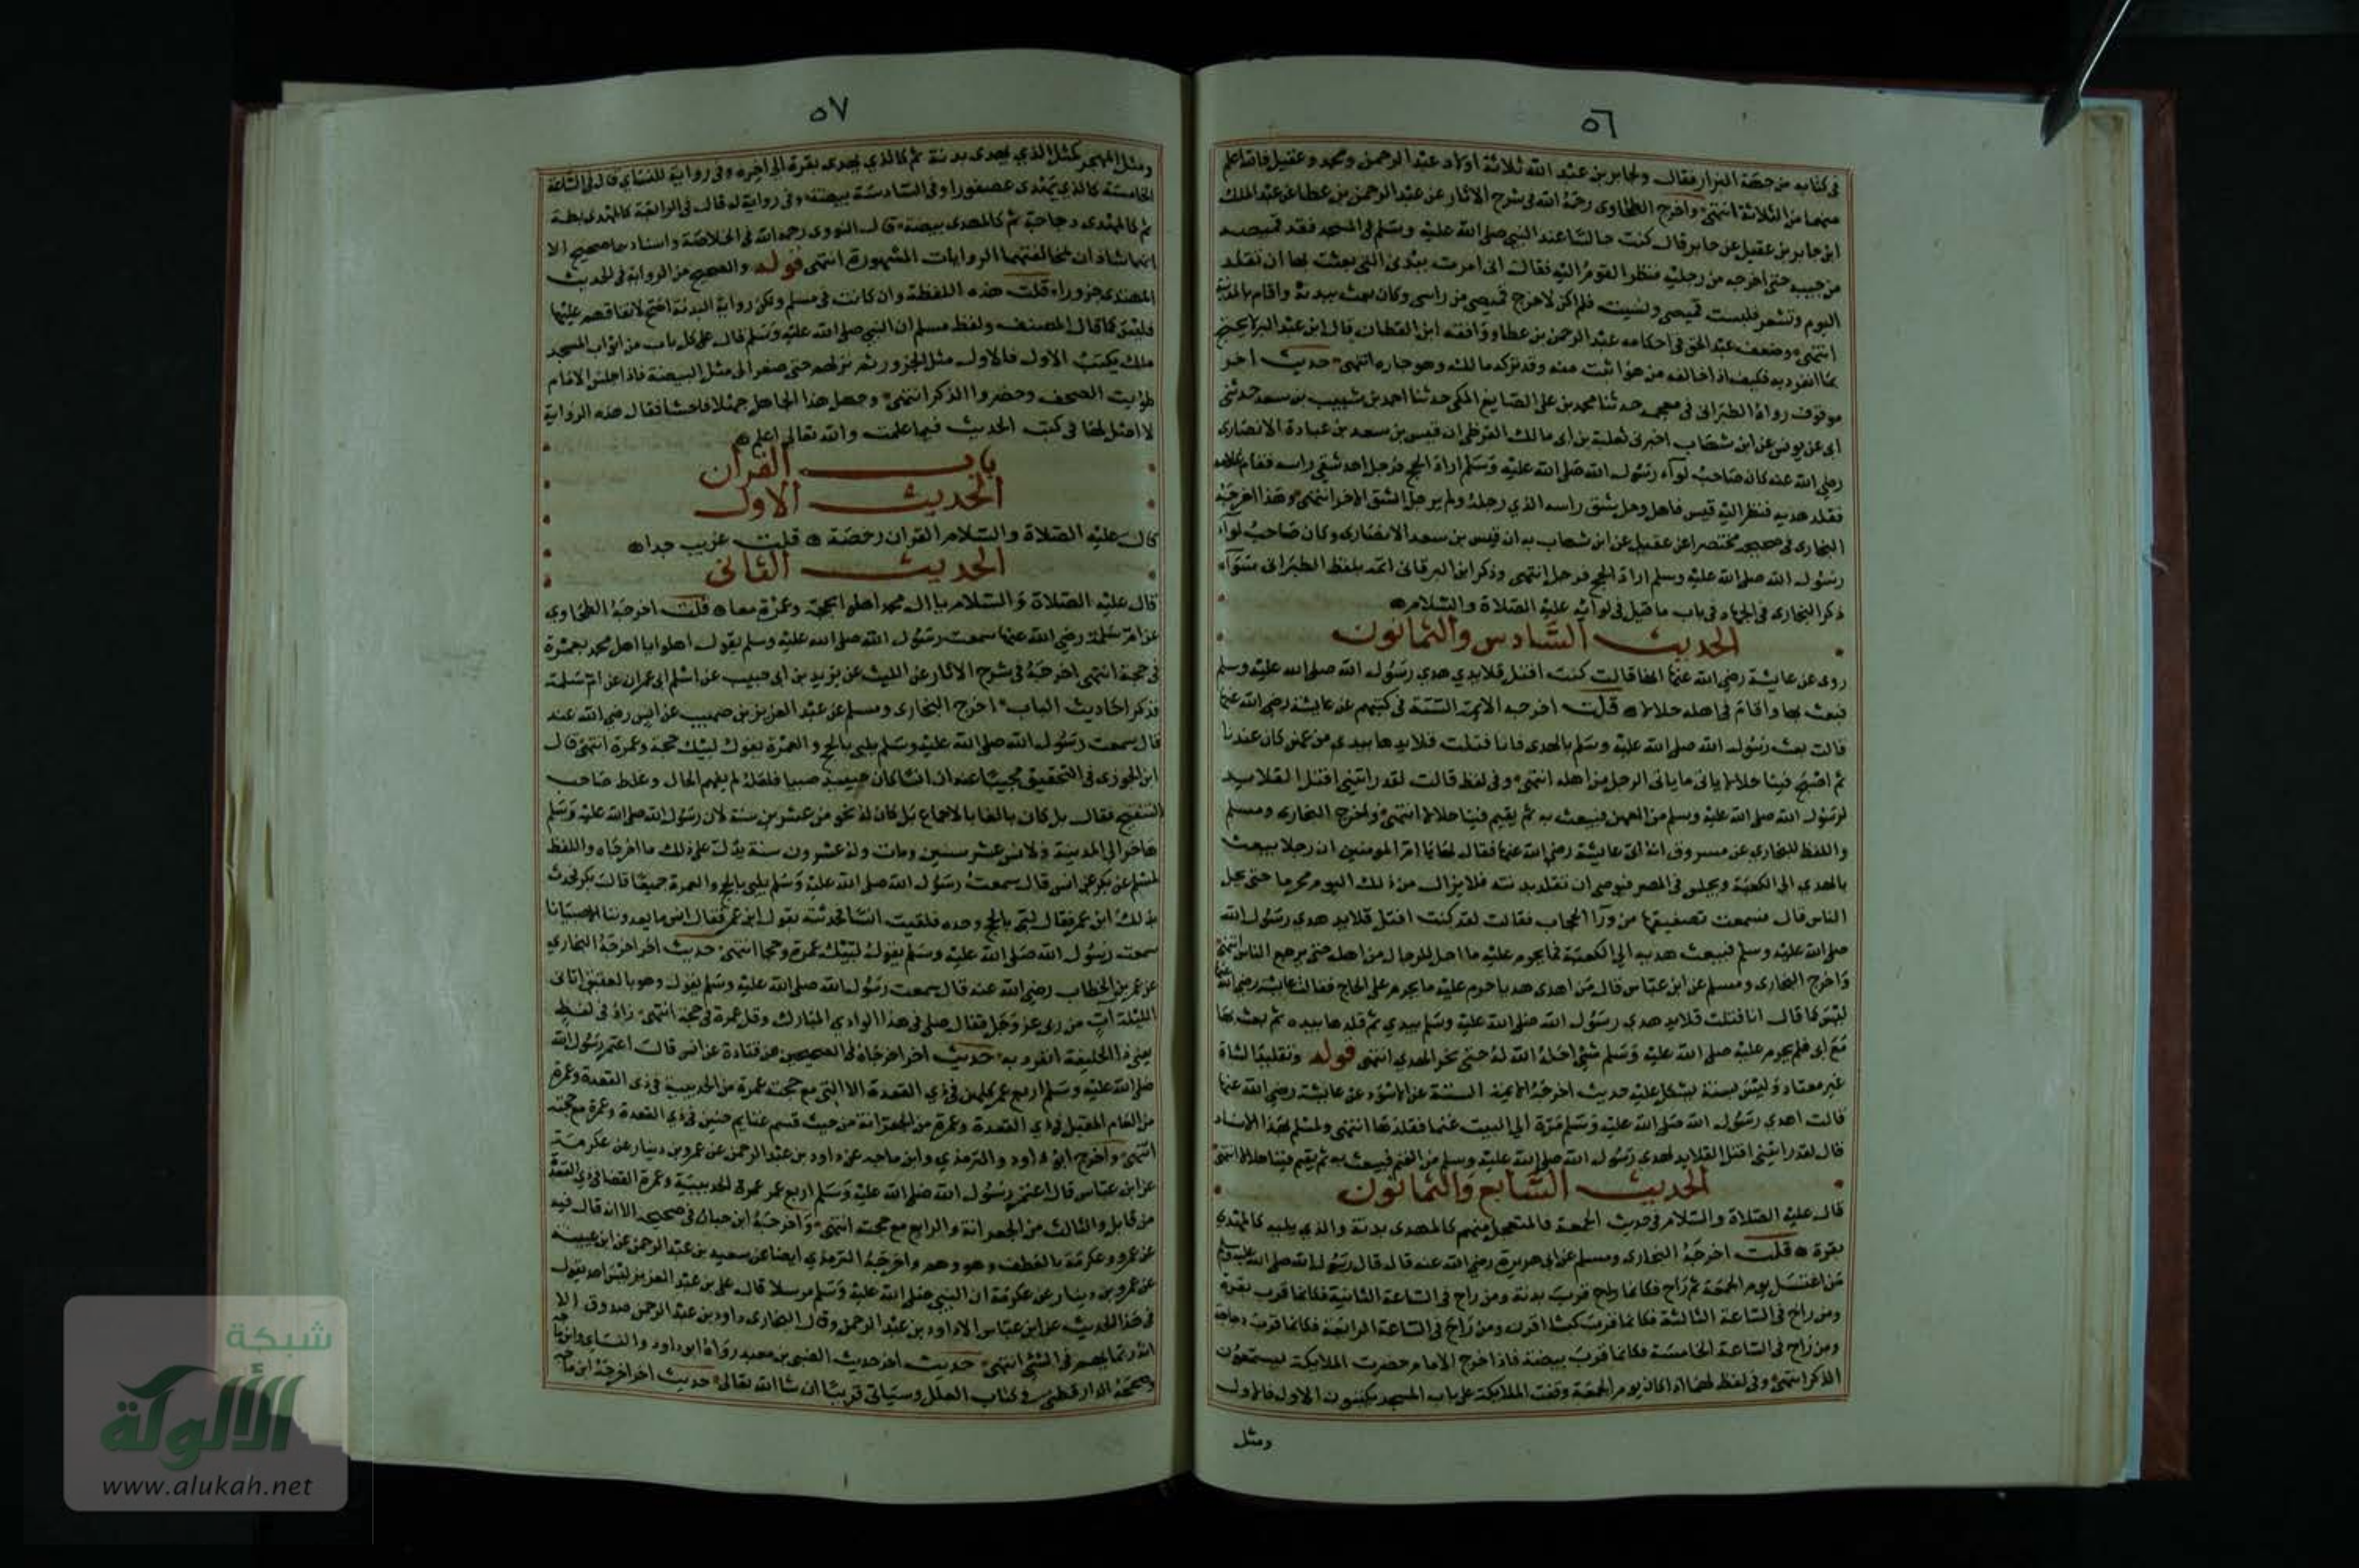 ٥٦
في كتابه من جهة البزار فقال ولجابر بن عبد الله ثلاثة اولاد عبد الرحمن ومحمد وعقيل فالله اعلم
من الثلاثة انتهى واخرج الطحاوى رحمه الله في شرح الاثار عن عبد الرحمن بن عطا عن عبد الملك
ابن جابر بن عقيل عن جابر قال كنت جالسا عند النبي صلى الله عليه وسلم في المسجد فقد قميصه
من جيبه حتى اخرجه من رجليه فنظر القوم اليه فقال انى امرت ببدنى التي بعثت بها ان تقلد
اليوم وتشعر فلبست قميصى ونسيت فلم اكن لاخرج قميصى من راسى وكان بعث ببدنه واقام بالمدينة
انتهى وضعفه عبد الحق في احكامه بعبد الرحمن بن عطا ووافقه ابن القطان قال ابن عبد البر لا يحتج
بما انفرد به فكيف اذا خالفه من هو اثبت منه وقد تركه مالك وهو جاره انتهى حديث اخر
موقوف رواه الطبرانى في معجمه حدثنا محمد بن على الصايغ المكى حدثنا احمد بن شبيب بن سعيد حدثنى
ابى عن يونس عن ابن شهاب اخبرنى ثعلبة بن ابى مالك القرظى ان قيس بن سعد بن عبادة الانصارى
رضي الله عنه كان صاحب لواء رسول الله صلى الله عليه وسلم اراد الحج فرجل احد شقي راسه فقام غلامه
فقلد هديه فنظر اليه قيس فاهل وحل شق راسه الذي رجله ولم يرجل الشق الاخر انتهى وهذا اخرجه
البخارى في صحيحه مختصرا عن عقيل عن ابن شهاب به ان قيس بن سعد الانصارى وكان صاحب لواء
رسول الله صلى الله عليه وسلم اراد الحج فرجل انتهى وذكر ابن البرقانى اتمه بلفظ الطبرانى سواء
ذكره البخارى في الجهاد في باب ما قيل في لوائه عليه الصلاة والسلام
الحديث السادس والثمانون
روى عن عايشة رضي الله عنها انها قالت كنت افتل قلايد هدي رسول الله صلى الله عليه وسلم
فبعث بها واقام في اهله حلالا قلت اخرجه الايمة الستة في كتبهم عن عايشة رضي الله عنها
قالت بعث رسول الله صلى الله عليه وسلم بالهدى فانا فتلت قلايدها بيدي من عهن كان عندنا
ثم اصبح فينا حلالا ياتى ما ياتى الرجل من اهله انتهى وفي لفظ قالت لقد رايتنى افتل القلايد
لرسول الله صلى الله عليه وسلم من العهن فيبعث به ثم يقيم فينا حلالا انتهى واخرج البخارى ومسلم
واللفظ للبخارى عن مسروق انه اتى عايشة رضي الله عنها فقال لها يا ام المومنين ان رجلا يبعث
بالهدي الى الكعبة ويجلس في المصر فيوصى ان تقلد بدنته فلا يزال من ذلك اليوم محرما حتى يحل
الناس قال فسمعت تصفيقها من وراء الحجاب فقالت لقد كنت افتل قلايد هدى رسول الله
صلى الله عليه وسلم فيبعث هديه الى الكعبة فما يحرم عليه ما احل للرجال من اهله حتى يرجع الناس انتهى
واخرج البخارى ومسلم عن ابن عباس قال من اهدى هديا حرم عليه ما يحرم على الحاج فقالت عايشة رضي الله عنها
ليس كما قال انا فتلت قلايد هدي رسول الله صلى الله عليه وسلم بيدي ثم قلدها بيده ثم بعث بها
مع ابى فلم يحرم عليه صلى الله عليه وسلم شئ احله الله له حتى نحر الهدى انتهى قوله وتقليد الشاة
غير معتاد وليس بسنة يشكل عليه حديث اخرجه الايمة الستة عن الاسود عن عايشة رضي الله عنها
قالت اهدي رسول الله صلى الله عليه وسلم مرة الى البيت غنما فقلدها انتهى ولمسلم بهذا الاسناد
قال لقد رايتنى افتل القلايد لهدى رسول الله صلى الله عليه وسلم من الغنم فيبعث به ثم يقيم فينا حلالا انتهى
الحديث السابع والثمانون
قال عليه الصلاة والسلام في حديث الجمعة فالمتعجل منهم كالمهدى بدنة والذي يليه كالمهدى
بقرة قلت اخرجه البخارى ومسلم عن ابى هريرة رضي الله عنه قال قال رسول الله صلى الله عليه وسلم
من اغتسل يوم الجمعة ثم راح فكانما قرب بدنة ومن راح في الساعة الثانية فكانما قرب بقرة
ومن راح في الساعة الثالثة فكانما قرب كبشا اقرن ومن راح في الساعة الرابعة فكانما قرب دجاجة
ومن راح في الساعة الخامسة فكانما قرب بيضة فاذا خرج الامام حضرت الملايكة يستمعون
الذكر انتهى وفي لفظ لهما اذا كان يوم الجمعة وقفت الملايكة على باب المسجد يكتبون الاول فالاول
ومثل
٥٧
ومثل المهجر كمثل الذي يهدى بدنة ثم كالذي يهدى بقرة الى اخره وفي رواية للنساي قال في الساعة
الخامسة كالذي يهدى عصفورا وفي السادسة بيضة وفي رواية له قال في الرابعة كالمهدى بطة
ثم كالمهدى دجاجة ثم كالمهدى بيضة قال النووى رحمه الله في الخلاصة واسنادهما صحيح الا
انهما شاذان لمخالفتهما الروايات المشهورة انتهى قوله والصحيح من الرواية في الحديث
كالمهدى جزورا قلت هذه اللفظة وان كانت في مسلم ولكن رواية البدنة اصح لاتفاقهم عليها
فليس كما قال المصنف ولفظ مسلم ان النبي صلى الله عليه وسلم قال على كل باب من ابواب المسجد
ملك يكتب الاول فالاول مثل الجزور ثم نزلهم حتى صغر الى مثل البيضة فاذا جلس الامام
طويت الصحف وحضروا الذكر انتهى وجهل هذا الجاهل جهلا فاحشا فقال هذه الرواية
لا اصل لها في كتب الحديث فيما علمت والله تعالى اعلم
باب القران
الحديث الاول
قال عليه الصلاة والسلام القران رخصة قلت غريب جدا
الحديث الثانى
قال عليه الصلاة والسلام يا ال محمد اهلوا بحجة وعمرة معا قلت اخرجه الطحاوي
عن ام سلمة رضي الله عنها سمعت رسول الله صلى الله عليه وسلم يقول اهلوا يا اهل محمد بعمرة
في حجة انتهى اخرجه في شرح الاثار عن الليث عن يزيد بن ابى حبيب عن اسلم ابى عمران عن ام سلمة
فذكر احاديث الباب اخرج البخارى ومسلم عن عبد العزيز بن صهيب عن انس رضي الله عنه
قال سمعت رسول الله صلى الله عليه وسلم يلبى بالحج والعمرة يقول لبيك حجة وعمرة انتهى قال
ابن الجوزى في التحقيق مجيبا عنه ان انسا كان حينيذ صبيا فلعله لم يفهم الحال وغلط صاحب
التنقيح فقال بل كان بالغا بالاجماع بل كان له نحو من عشرين سنة لان رسول الله صلى الله عليه وسلم
هاجر الى المدينة ولانس عشر سنين ومات وله عشرون سنة يدل على ذلك ما اخرجاه واللفظ
لمسلم عن بكر عن انس قال سمعت رسول الله صلى الله عليه وسلم يلبى بالحج والعمرة جميعا قال بكر فحدثت
بذلك ابن عمر فقال لبى بالحج وحده فلقيت انسا فحدثته بقول ابن عمر فقال انس ما يعدوننا الا صبيانا
سمعت رسول الله صلى الله عليه وسلم يقول لبيك عمرة وحجا انتهى حديث اخر اخرجه البخاري
عن عمر بن الخطاب رضي الله عنه قال سمعت رسول الله صلى الله عليه وسلم يقول وهو بالعقيق اتانى
الليلة ات من ربى عز وجل فقال صلى في هذا الوادي المبارك وقل عمرة في حجة انتهى زاد في لفظ
يعني ذا الحليفة انفرد به حديث اخر اخرجاه في الصحيحين عن قتادة عن انس قال اعتمر رسول الله
صلى الله عليه وسلم اربع عمر كلهن في ذي القعدة الا التي مع حجته عمرة من الحديبية في ذى القعدة وعمرة
من العام المقبل في ذي القعدة وعمرة من الجعرانة من حيث قسم غنايم حنين في ذي القعدة وعمرة مع حجته
انتهى واخرج ابو داود والترمذي وابن ماجه عن داود بن عبد الرحمن عن عمرو بن دينار عن عكرمة
عن ابن عباس قال اعتمر رسول الله صلى الله عليه وسلم اربع عمر عمرة الحديبية وعمرة القضا في ذي القعدة
من قابل والثالث من الجعرانة والرابع مع حجته انتهى واخرجه ابن حبان في صحيحه الا انه قال فيه
عن عمرو وعكرمة بالعطف وهو وهم واخرجه الترمذي ايضا عن سعيد بن عبد الرحمن عن ابن عيينة
عن عمرو بن دينار عن عكرمة ان النبي صلى الله عليه وسلم مرسلا قال على بن عبد العزيز ليس احد يقول
في هذا الحديث عن ابن عباس الا داود بن عبد الرحمن وقال البخارى داود بن عبد الرحمن صدوق الا
انه ربما يهم في الشئ انتهى حديث اخر حديث الصبى بن معبد رواه ابو داود والنساي وابن ماجه
وصححه الدارقطنى في كتاب العلل وسياتى قريبا ان شا الله تعالى حديث اخر اخرجه ابن ماجه
شبكة
الألوكة
www.alukah.net